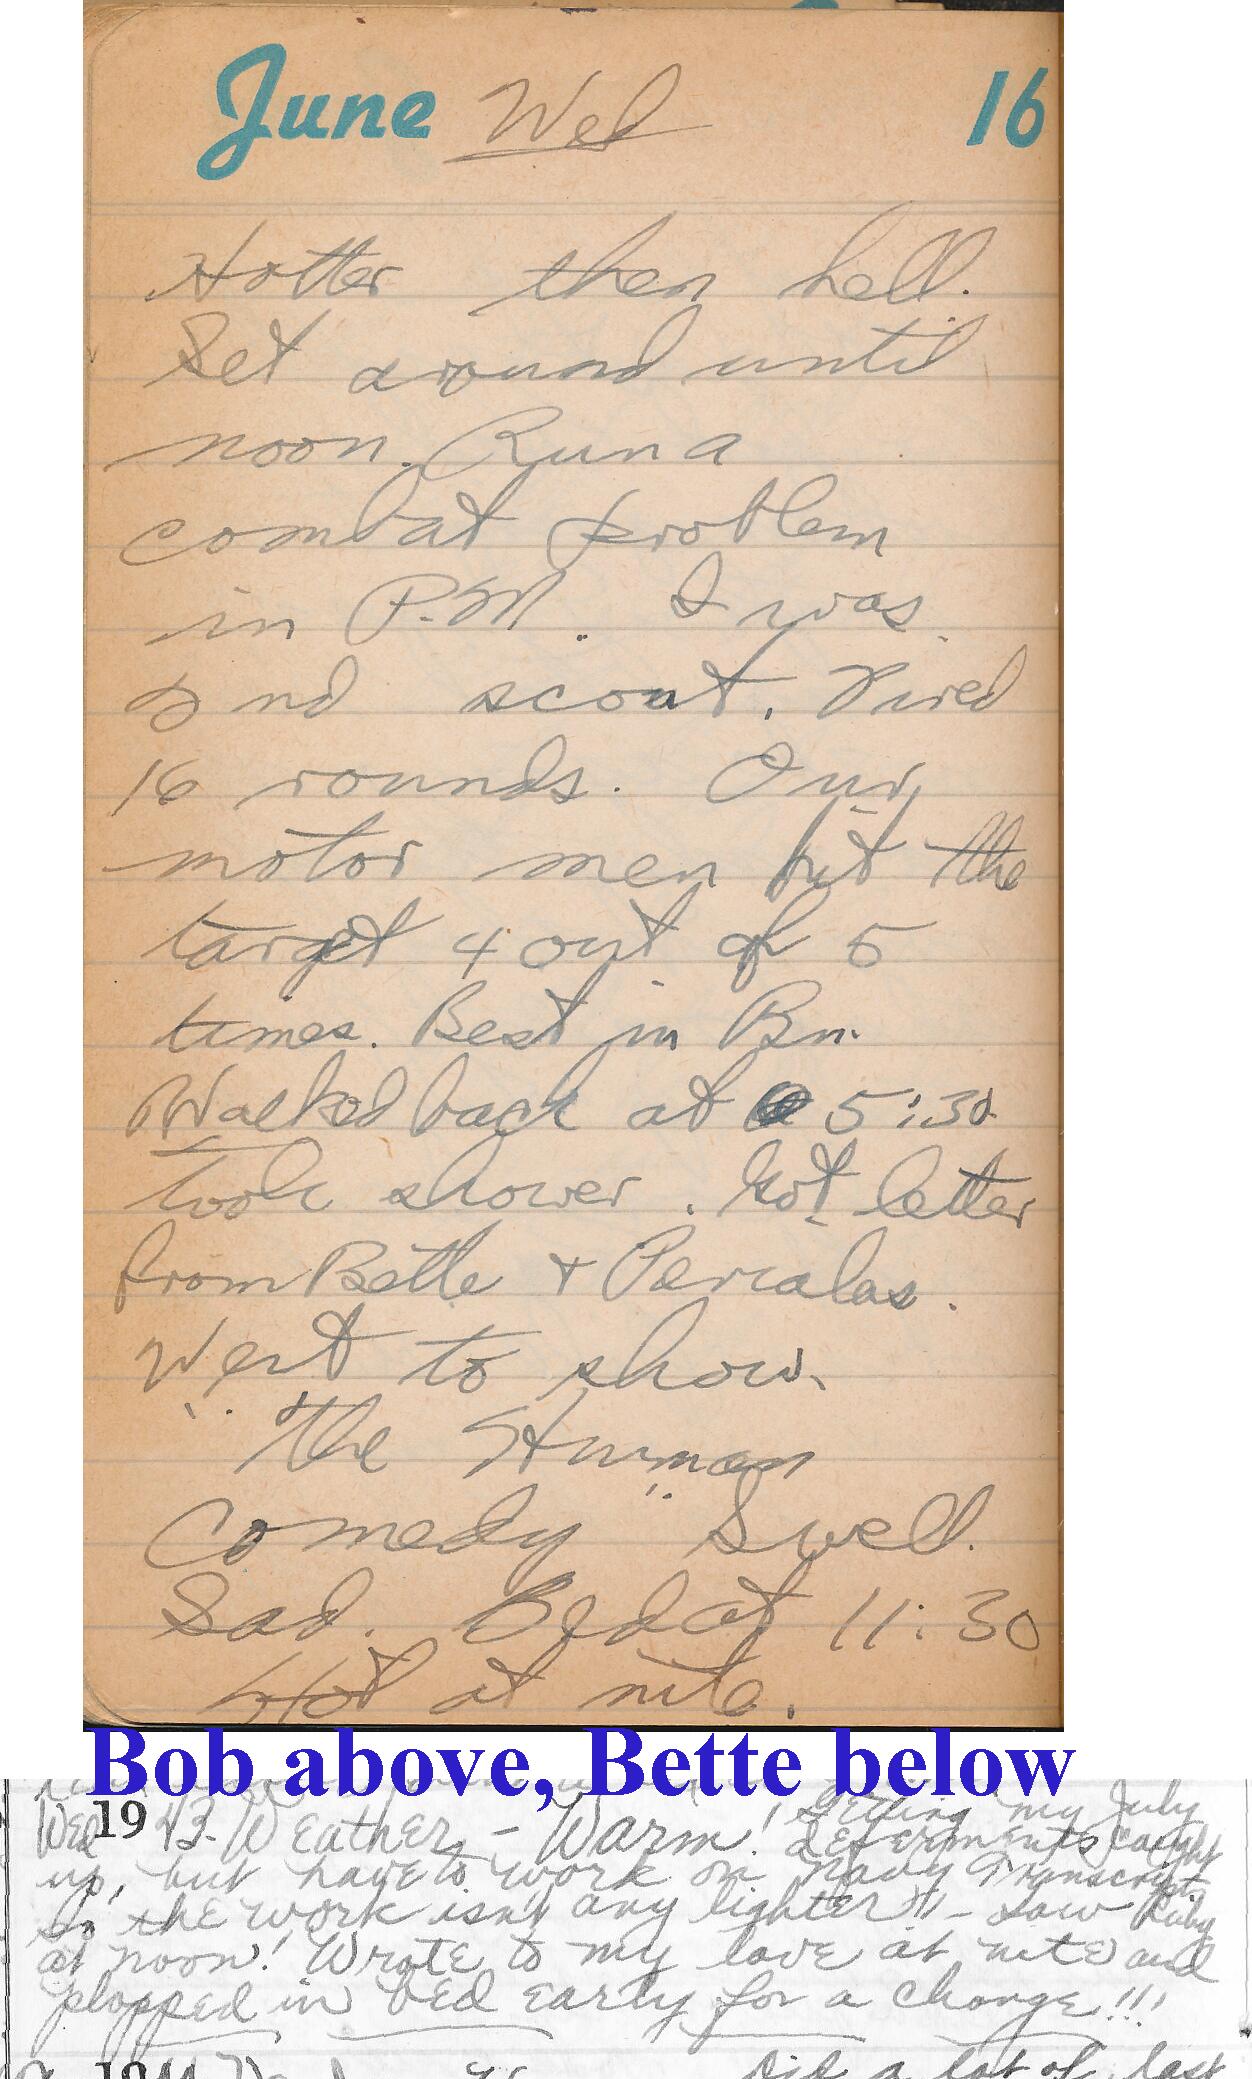 June Wed 16
Hotter then hell.
Set around until
noon. Run a
combat problem
in P.M. I was
2nd scout. Fired
16 rounds. Our
motor men hit the
target 4 out of 5
times. Best in Bn.
Walked back at 5:30
took shower. Got letter
from Bette &
Went to show.
"The Human
Comedy" Swell.
Sad. Bed at 11:30
Hot at nite.
Bob above, Bette below
Wed 1943- Weather - Warm! Getting my July
deferments caught
up, but have to work on Navy Transcript
So the work isn't any lighter!! - Saw Ruby
at noon! Wrote to my love at nite and
plopped in bed early for a change!!!
19
Did a lot of last